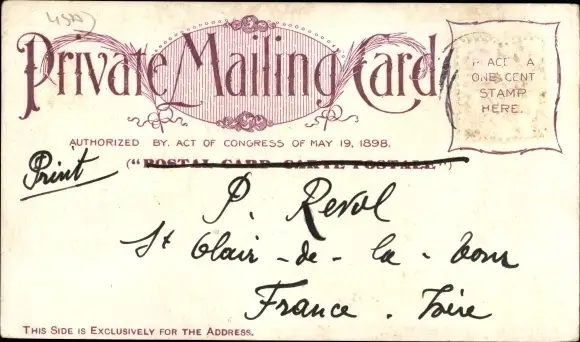 Private Mailing Card
PLACE A
ONE CENT
STAMP
HERE.
AUTHORIZED BY ACT OF CONGRESS OF MAY 19, 1898.
("POSTAL CARD CARTE POSTALE")
Print
P. Revol
St Clair - de - la - Tour
France. Isère
THIS SIDE IS EXCLUSIVELY FOR THE ADDRESS.